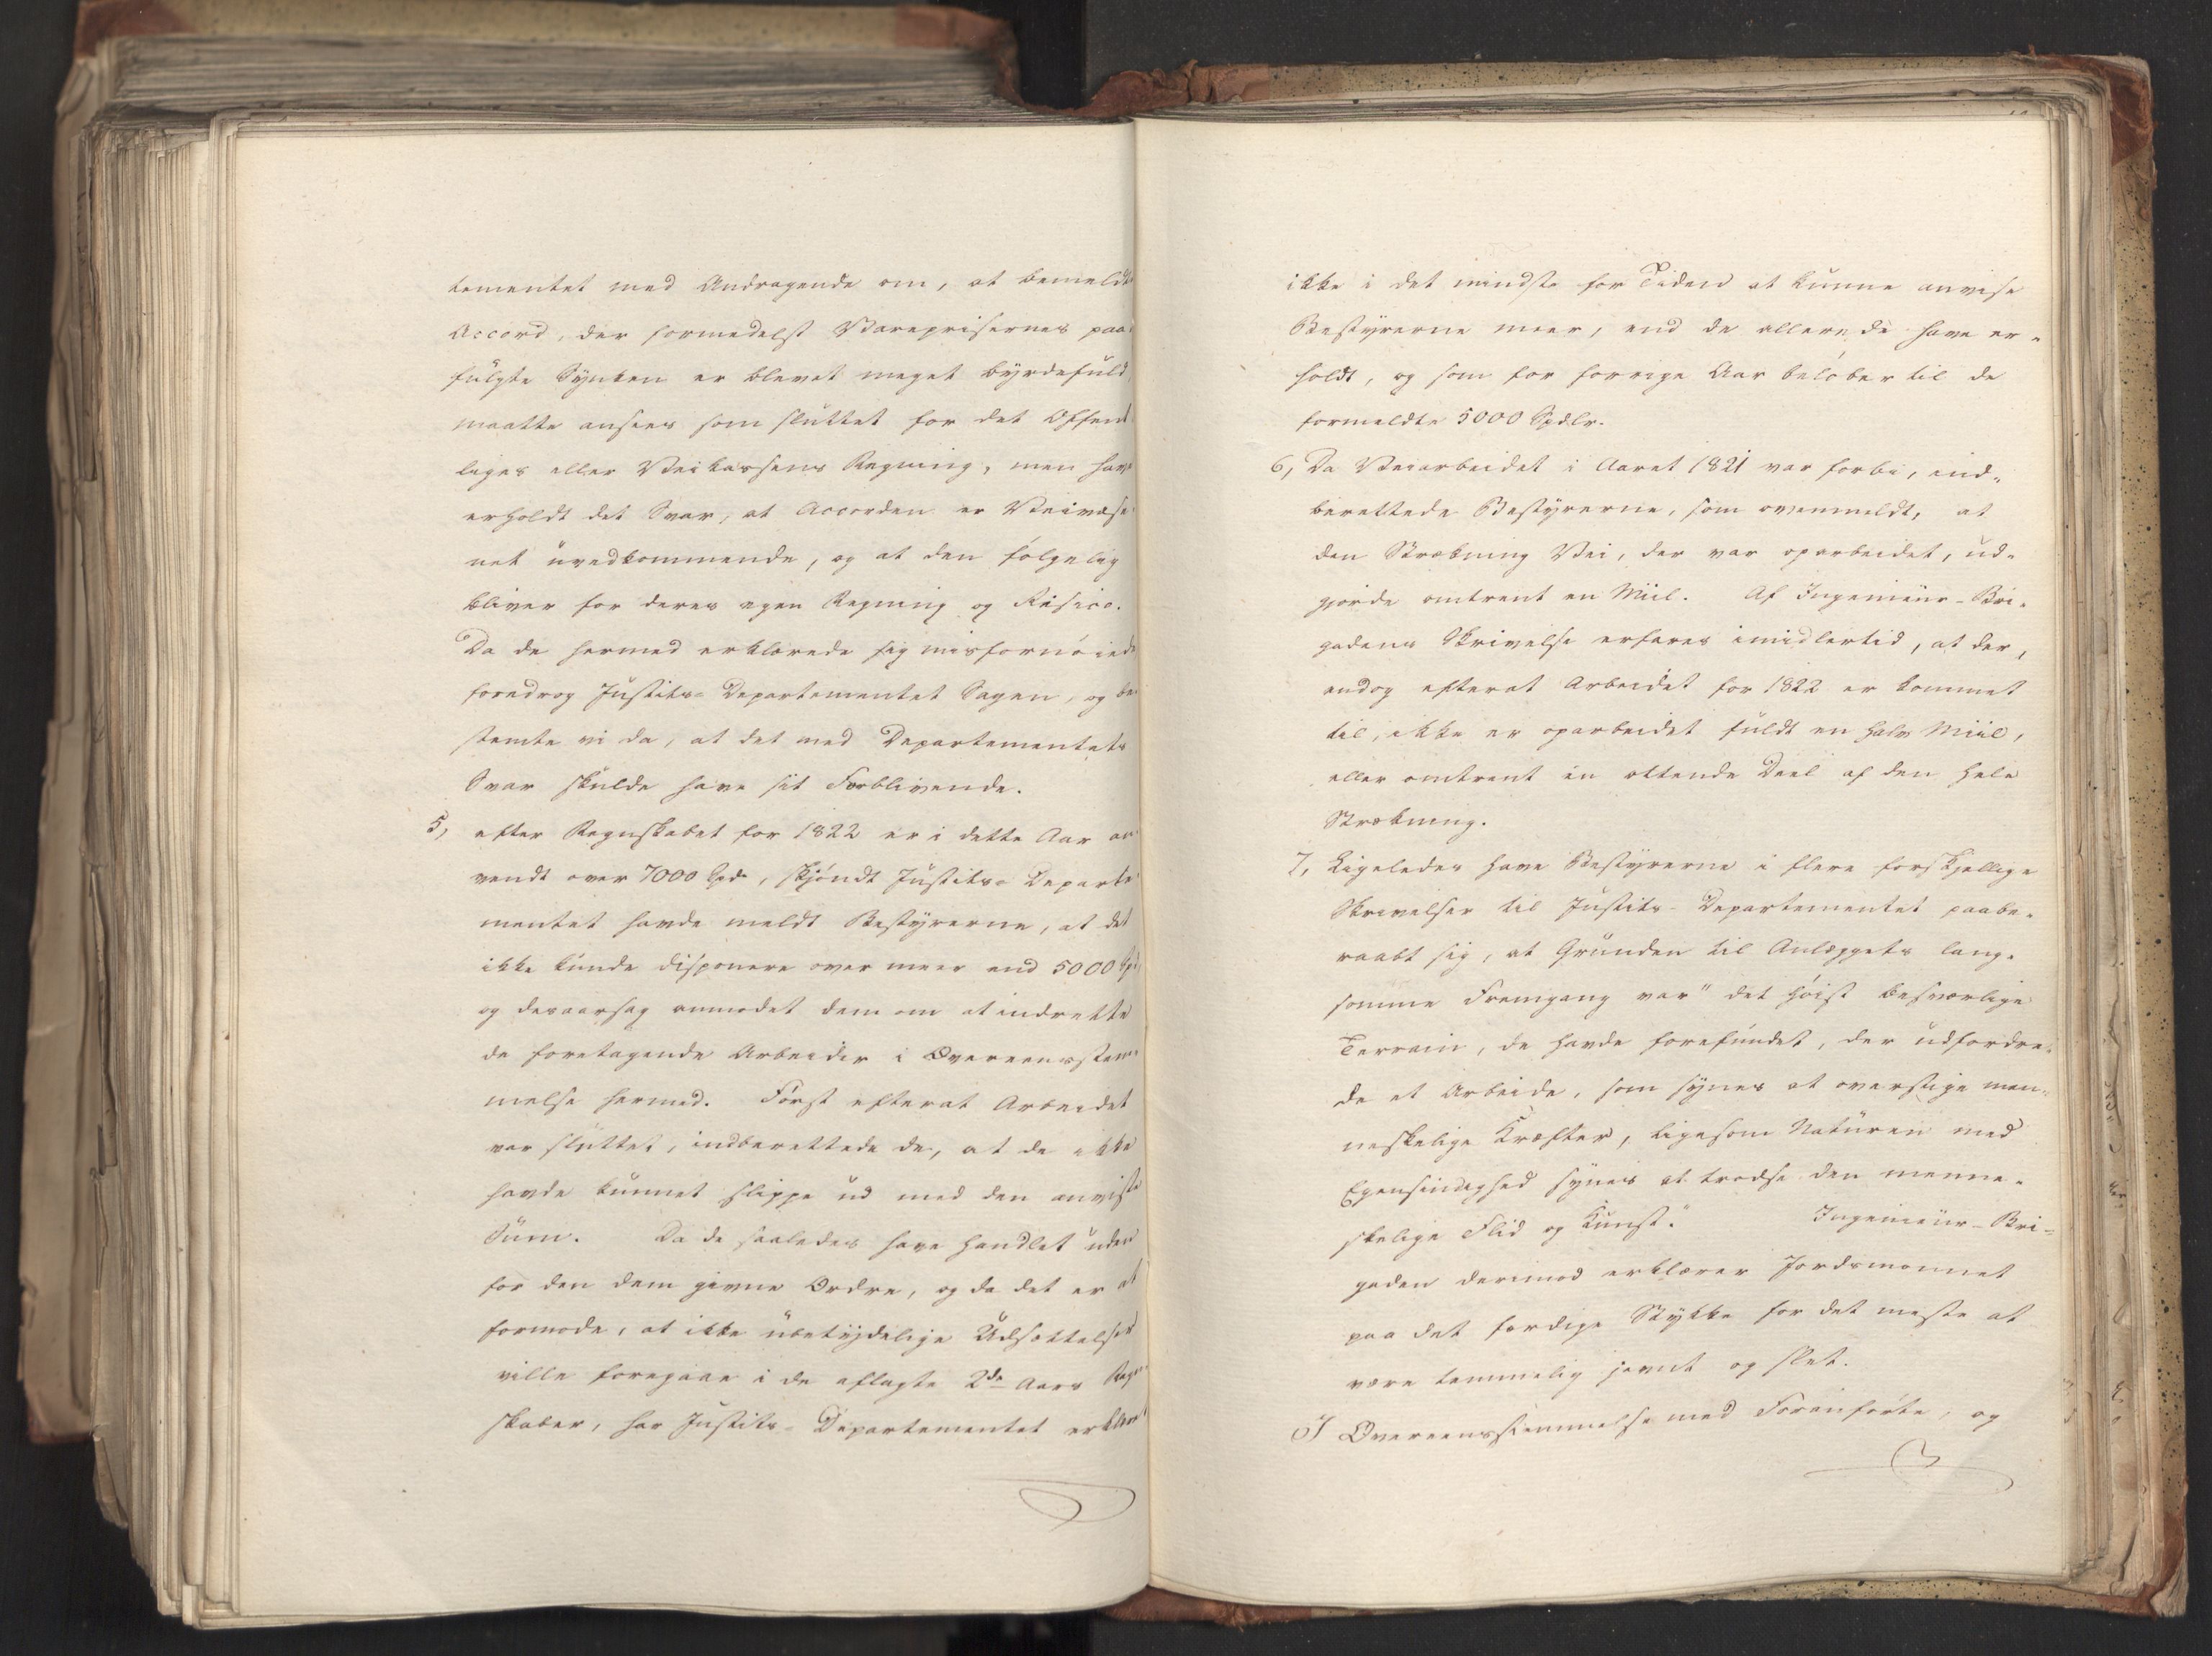 tementet med Andragende om, at bemeldte
Accord, der formedelst Vareprisernes paa-
fulgte Synken er blevet meget byrdefuld
maatte ansees som sluttet for det Offent
liges eller Veikassens Regning, men have
erholdt det Svar, at Accorden er Veivæse-
net uvedkommende, og at den følgelig
bliver for deres egen Regning og Risico.
Da de hermed erklærede sig misfornøiede
foredrog Justits-Departementet Sagen, og be-
stemte vi da, at det med Departementets
Svar skulde have sit Forblivende.
5, efter Regnskabet for 1822 er i dette Aar an-
vendt over 7000 Spd, skjøndt Justits-Departe
mentet havde meldt Bestyrerne, at det
ikke kunde disponere over meer end 5000 Spd
og desaarsag anmodet dem om at indrette
de foretagende Arbeider i Overeensstem-
melse hermed. Først efterat Arbeidet
var sluttet, indberettede de, at de ikke
havde kunnet slippe ud med den anviste
Sum. Da de saaledes have handlet uden
for den dem givne Ordre, og da det er at
formode, at ikke ubetydelige Udsættelser
ville foregaae i de aflagte 2de Aars Regn-
skaber, har Justits-Departementet erklæret
ikke i det mindste for Tiden at kunne anvise
Bestyrerne meer, end de allerede have er-
holdt, og som for forrige Aar beløber til de
formeldte 5000 Spdlr.
6, Da Veiarbeidet i Aaret 1821 var forbi, ind-
berettede Bestyrerne, som ovenmeldt, at
den Strækning Vei, der var oparbeidet, ud-
gjorde omtrent en Miil. Af Ingenieur-Bri-
gadens Skrivelse erfares imidlertid, at der,
endog efterat Arbeidet for 1822 er kommet
til, ikke er oparbeidet fuldt en halv Miil,
eller omtrent en ottende Deel af den hele
Strækning.
7, Ligeledes have Bestyrerne i flere forskjellige
Skrivelser til Justits-Departementet paabe-
raabt sig, at Grunden til Anlæggets lang-
somme Fremgang var "det høist besværlige
Terrain, de havde forefundet, der udfordre-
de et Arbeide, som synes at overstige men-
neskelige Kræfter, ligesom Naturen med
Egensindighed synes at trodse den menne-
skelige Flid og Kunst." Ingenieur-Bri-
gaden derimod erklærer Jordsmonnet
paa det færdige Stykke for det meste at
være temmelig jævnt og slet.
I Overeensstemmelse med Foranførte, og